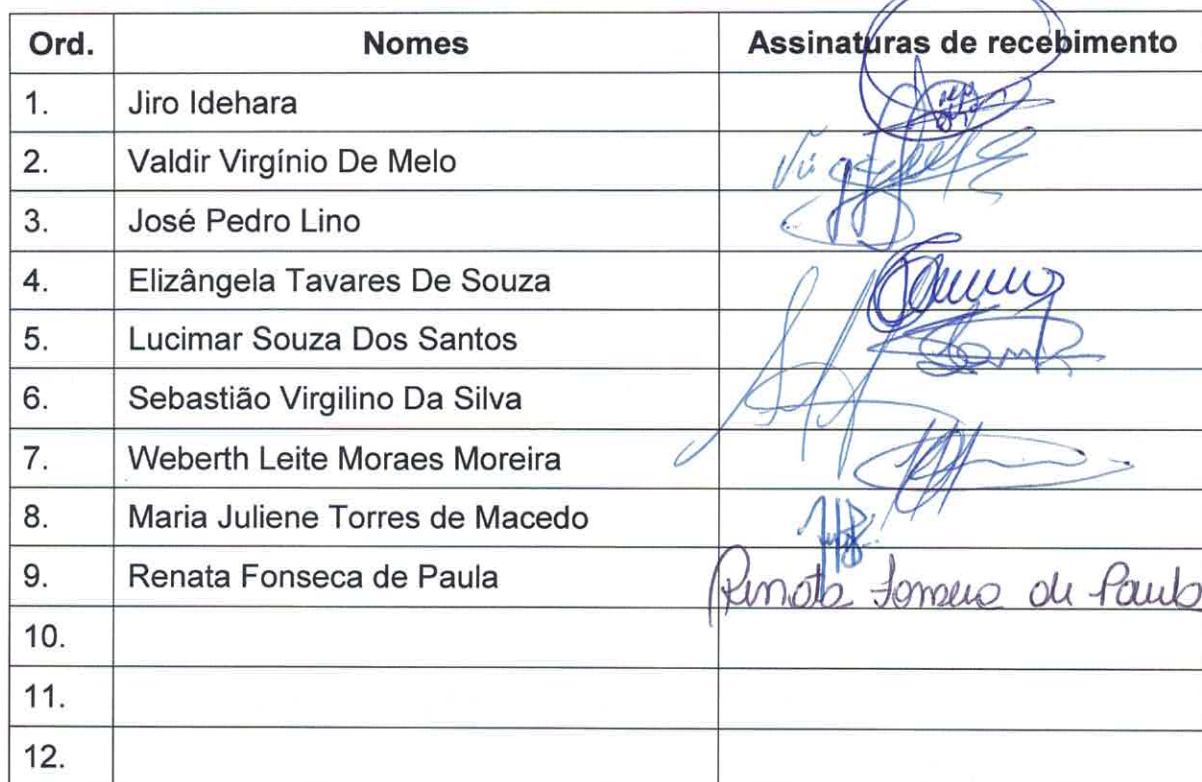 Ord. Nomes Assinaturas de recebimento
1. Jiro Idehara
2. Valdir Virgínio De Melo
3. José Pedro Lino
4. Elizângela Tavares De Souza
5. Lucimar Souza Dos Santos
6. Sebastião Virgilino Da Silva
7. Weberth Leite Moraes Moreira
8. Maria Juliene Torres de Macedo
9. Renata Fonseca de Paula Renata Fonseca de Paula
10.
11.
12.